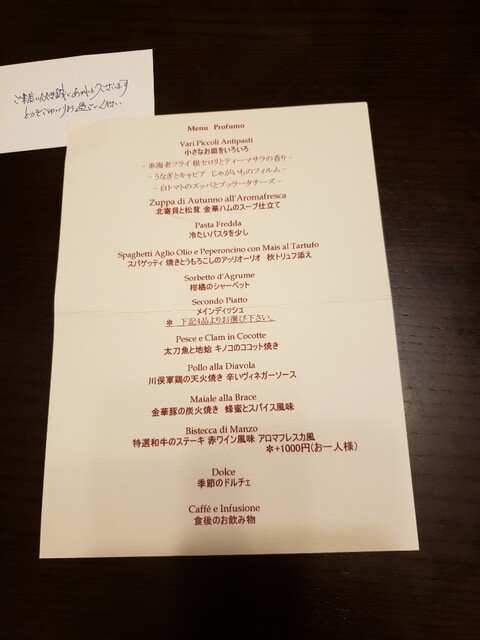 ご来店いただき誠にありがとうございます
どうぞごゆっくりお過ごしください
Menu Profumo
Vari Piccoli Antipasti
小さなお皿をいろいろ
- 車海老フライ 根セロリとティーマサラの香り -
- うなぎとキャビア じゃがいものフィルム -
- 白トマトのズッパとブッラータチーズ -
Zuppa di Autunno all'Aromafresca
北寄貝と松茸 金華ハムのスープ仕立て
Pasta Fredda
冷たいパスタを少し
Spaghetti Aglio Olio e Peperoncino con Mais al Tartufo
スパゲッティ 焼きとうもろこしのアッリオーリオ 秋トリュフ添え
Sorbetto d'Agrume
柑橘のシャーベット
Secondo Piatto
メインディッシュ
＊ 下記4品よりお選び下さい。
Pesce e Clam in Cocotte
太刀魚と地蛤 キノコのココット焼き
Pollo alla Diavola
川俣軍鶏の天火焼き 辛いヴィネガーソース
Maiale alla Brace
金華豚の炭火焼き 蜂蜜とスパイス風味
Bistecca di Manzo
特選和牛のステーキ 赤ワイン風味 アロマフレスカ風
＊+1000円(お一人様)
Dolce
季節のドルチェ
Caffé e Infusione
食後のお飲み物